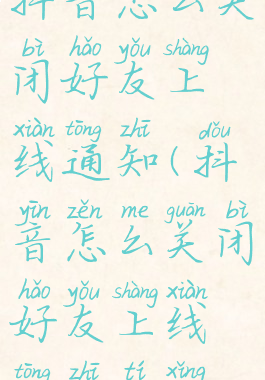 抖音怎么关
bì hǎo yǒu shàng
闭好友上
xiàn tōng zhī dǒu
线通知(抖
yīn zěn me guān bì
音怎么关闭
hǎo yǒu shàng xiàn
好友上线
tōng zhī tí xǐng